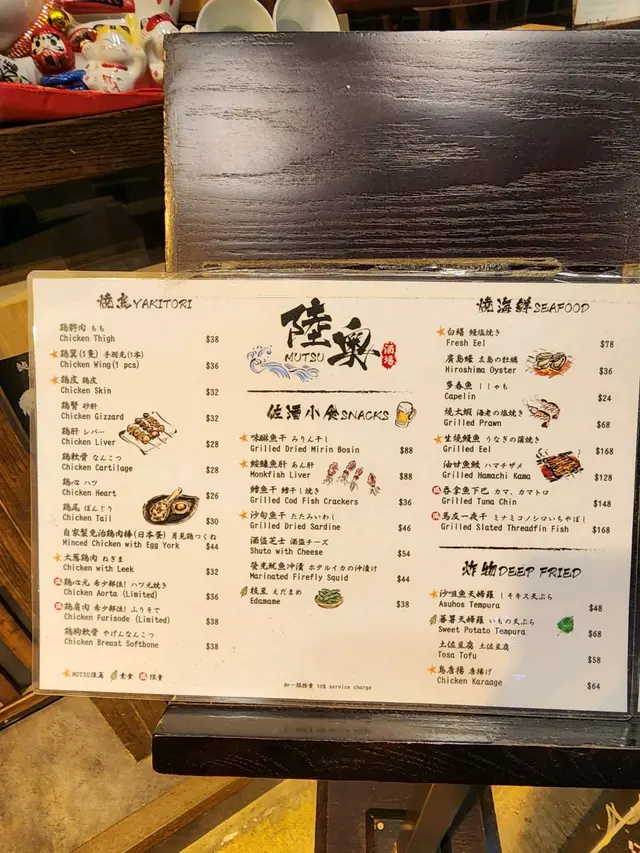 燒鳥YAKITORI
鶏髀肉 もも
Chicken Thigh $38
鶏翼(1隻) 手羽先(1本)
Chicken Wing(1 pcs) $36
鶏皮 鶏皮
Chicken Skin $32
鶏腎 砂肝
Chicken Gizzard $32
鶏肝 レバー
Chicken Liver $28
鶏軟骨 なんこつ
Chicken Cartilage $28
鶏心 ハツ
Chicken Heart $26
鶏尾 ぼんじり
Chicken Tail $30
自家製免治鶏肉棒(日本蛋) 月見鶏つくね
Minced Chicken with Egg York $44
大葱鶏肉 ねぎま
Chicken with Leek $32
鶏心元 希少部位! ハツ元焼き
Chicken Aorta (Limited) $36
鶏肩肉 希少部位! ふりそで
Chicken Furisode (Limited) $38
鶏胸軟骨 やげんなんこつ
Chicken Breast Softbone $38
MUTSU推薦 素食 限量
陸奥
MUTSU
酒場
佐酒小食SNACKS
味醂魚干 みりん干し
Grilled Dried Mirin Bosin $88
鮟鱇魚肝 あん肝
Monkfish Liver $88
鱈魚干 鱈干し焼き
Grilled Cod Fish Crackers $36
沙甸魚干 たたみいわし
Grilled Dried Sardine $46
酒盜芝士 酒盗チーズ
Shuto with Cheese $54
螢光魷魚沖漬 ホタルイカの沖漬け
Marinated Firefly Squid $44
枝豆 えだまめ
Edamame $38
加一服務費 10% service charge
燒海鮮SEAFOOD
白鱔 鰻塩焼き
Fresh Eel $78
廣島蠔 広島の牡蠣
Hiroshima Oyster $36
多春魚 ししゃも
Capelin $24
燒大蝦 海老の塩焼き
Grilled Prawn $68
生燒鰻魚 うなぎの蒲焼き
Grilled Eel $168
油甘魚鮫 ハマチザメ
Grilled Hamachi Kama $128
吞拿魚下巴 カマ、カマトロ
Grilled Tuna Chin $148
馬友一夜干 ミナミコノシロいちやぼし
Grilled Slated Threadfin Fish $168
炸物DEEP FRIED
沙咀魚天婦羅 しそキス天ぷら
Asuhos Tempura $48
蕃薯天婦羅 いもの天ぷら
Sweet Potato Tempura $68
土佐豆腐 土佐豆腐
Tosa Tofu $58
鳥唐揚 唐揚げ
Chicken Karaage $64